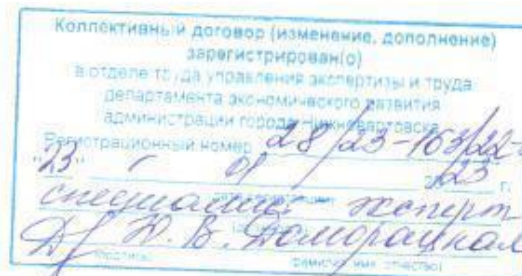 Коллективный договор (изменение, дополнение)
зарегистрирован(о)
в отделе труда управления экспертизы и труда
департамента экономического развития
администрации города Нижневартовска
Регистрационный номер 28/23-163/22-
"23" 01 2023 г.
специалист эксперт
Ю.В. Доморацкая
(подпись) (фамилия, имя, отчество)